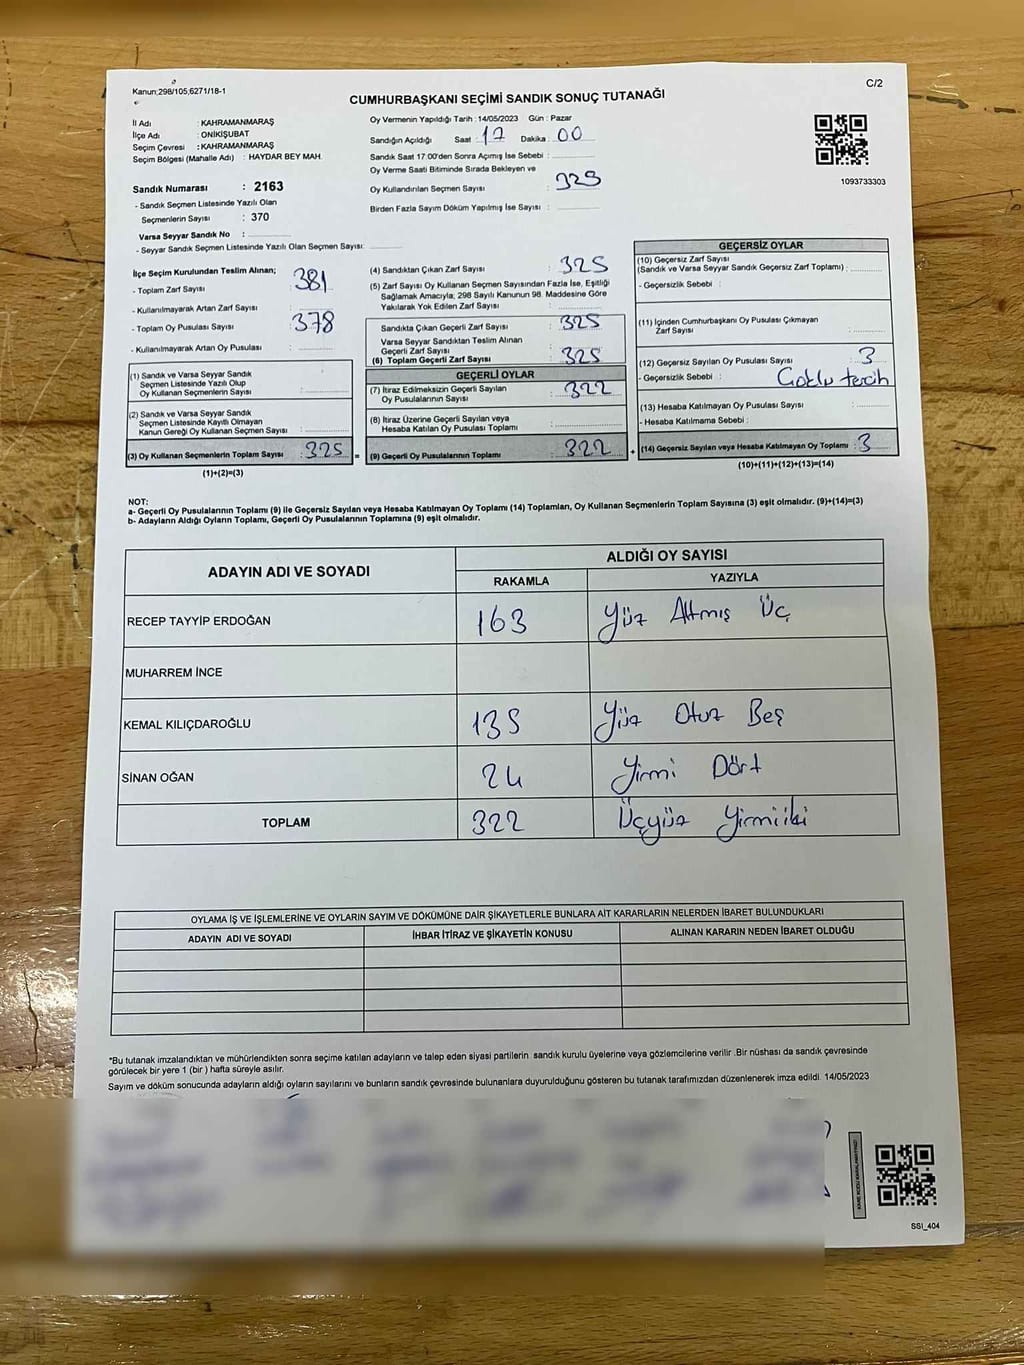 Kanun:298/105,6271/18-1
C/2
CUMHURBAŞKANI SEÇİMİ SANDIK SONUÇ TUTANAĞI
İl Adı : KAHRAMANMARAŞ
İlçe Adı : ONİKİŞUBAT
Seçim Çevresi : KAHRAMANMARAŞ
Seçim Bölgesi (Mahalle Adı) : HAYDAR BEY MAH.
Sandık Numarası : 2163
- Sandık Seçmen Listesinde Yazılı Olan
Seçmenlerin Sayısı : 370
Varsa Seyyar Sandık No :
- Seyyar Sandık Seçmen Listesinde Yazılı Olan Seçmen Sayısı:
Oy Vermenin Yapıldığı Tarih : 14/05/2023 Gün : Pazar
Sandığın Açıldığı Saat : 17 Dakika : 00
Sandık Saat 17:00'den Sonra Açımış İse Sebebi :
Oy Verme Saati Bitiminde Sırada Bekleyen ve
Oy Kullandırılan Seçmen Sayısı : 325
Birden Fazla Sayım Döküm Yapılmış İse Sayısı :
1093733303
İlçe Seçim Kurulundan Teslim Alınan;
- Toplam Zarf Sayısı : 381
- Kullanılmayarak Artan Zarf Sayısı :
- Toplam Oy Pusulası Sayısı : 378
- Kullanılmayarak Artan Oy Pusulası :
(1) Sandık ve Varsa Seyyar Sandık
Seçmen Listesinde Yazılı Olup
Oy Kullanan Seçmenlerin Sayısı :
(2) Sandık ve Varsa Seyyar Sandık
Seçmen Listesinde Kayıtlı Olmayan
Kanun Gereği Oy Kullanan Seçmen Sayısı :
(3) Oy Kullanan Seçmenlerin Toplam Sayısı : 325 =
(1)+(2)=(3)
(4) Sandıktan Çıkan Zarf Sayısı : 325
(5) Zarf Sayısı Oy Kullanan Seçmen Sayısından Fazla İse, Eşitliği
Sağlamak Amacıyla; 298 Sayılı Kanunun 98. Maddesine Göre
Yakılarak Yok Edilen Zarf Sayısı :
Sandıkta Çıkan Geçerli Zarf Sayısı : 325
Varsa Seyyar Sandıktan Teslim Alınan
Geçerli Zarf Sayısı :
(6) Toplam Geçerli Zarf Sayısı : 325
GEÇERLİ OYLAR
(7) İtiraz Edilmeksizin Geçerli Sayılan
Oy Pusulalarının Sayısı : 322
(8) İtiraz Üzerine Geçerli Sayılan veya
Hesaba Katılan Oy Pusulaları Toplamı :
(9) Geçerli Oy Pusulalarının Toplamı : 322 +
GEÇERSİZ OYLAR
(10) Geçersiz Zarf Sayısı
(Sandık ve Varsa Seyyar Sandık Geçersiz Zarf Toplamı) :
- Geçersizlik Sebebi :
(11) İçinden Cumhurbaşkanı Oy Pusulası Çıkmayan
Zarf Sayısı :
(12) Geçersiz Sayılan Oy Pusulası Sayısı : 3
- Geçersizlik Sebebi : Çoklu tercih
(13) Hesaba Katılmayan Oy Pusulası Sayısı :
- Hesaba Katılmama Sebebi :
(14) Geçersiz Sayılan veya Hesaba Katılmayan Oy Toplamı : 3
(10)+(11)+(12)+(13)=(14)
NOT:
a- Geçerli Oy Pusulalarının Toplamı (9) ile Geçersiz Sayılan veya Hesaba Katılmayan Oy Toplamı (14) Toplamları, Oy Kullanan Seçmenlerin Toplam Sayısına (3) eşit olmalıdır. (9)+(14)=(3)
b- Adayların Aldığı Oyların Toplamı, Geçerli Oy Pusulalarının Toplamına (9) eşit olmalıdır.
ADAYIN ADI VE SOYADI
ALDIĞI OY SAYISI
RAKAMLA YAZIYLA
RECEP TAYYİP ERDOĞAN 163 Yüz Altmış Üç
MUHARREM İNCE
KEMAL KILIÇDAROĞLU 135 Yüz Otuz Beş
SİNAN OĞAN 24 Yirmi Dört
TOPLAM 322 Üçyüz Yirmiiki
OYLAMA İŞ VE İŞLEMLERİNE VE OYLARIN SAYIM VE DÖKÜMÜNE DAİR ŞİKAYETLERLE BUNLARA AİT KARARLARIN NELERDEN İBARET BULUNDUKLARI
ADAYIN ADI VE SOYADI İHBAR İTİRAZ VE ŞİKAYETİN KONUSU ALINAN KARARIN NEDEN İBARET OLDUĞU
*Bu tutanak imzalandıktan ve mühürlendikten sonra seçime katılan adayların ve talep eden siyasi partilerin sandık kurulu üyelerine veya gözlemcilerine verilir .Bir nüshası da sandık çevresinde
görülecek bir yere 1 (bir ) hafta süreyle asılır.
Sayım ve döküm sonucunda adayların aldığı oyların sayılarını ve bunların sandık çevresinde bulunanlara duyurulduğunu gösteren bu tutanak tarafımızdan düzenlenerek imza edildi. 14/05/2023
SSI_404